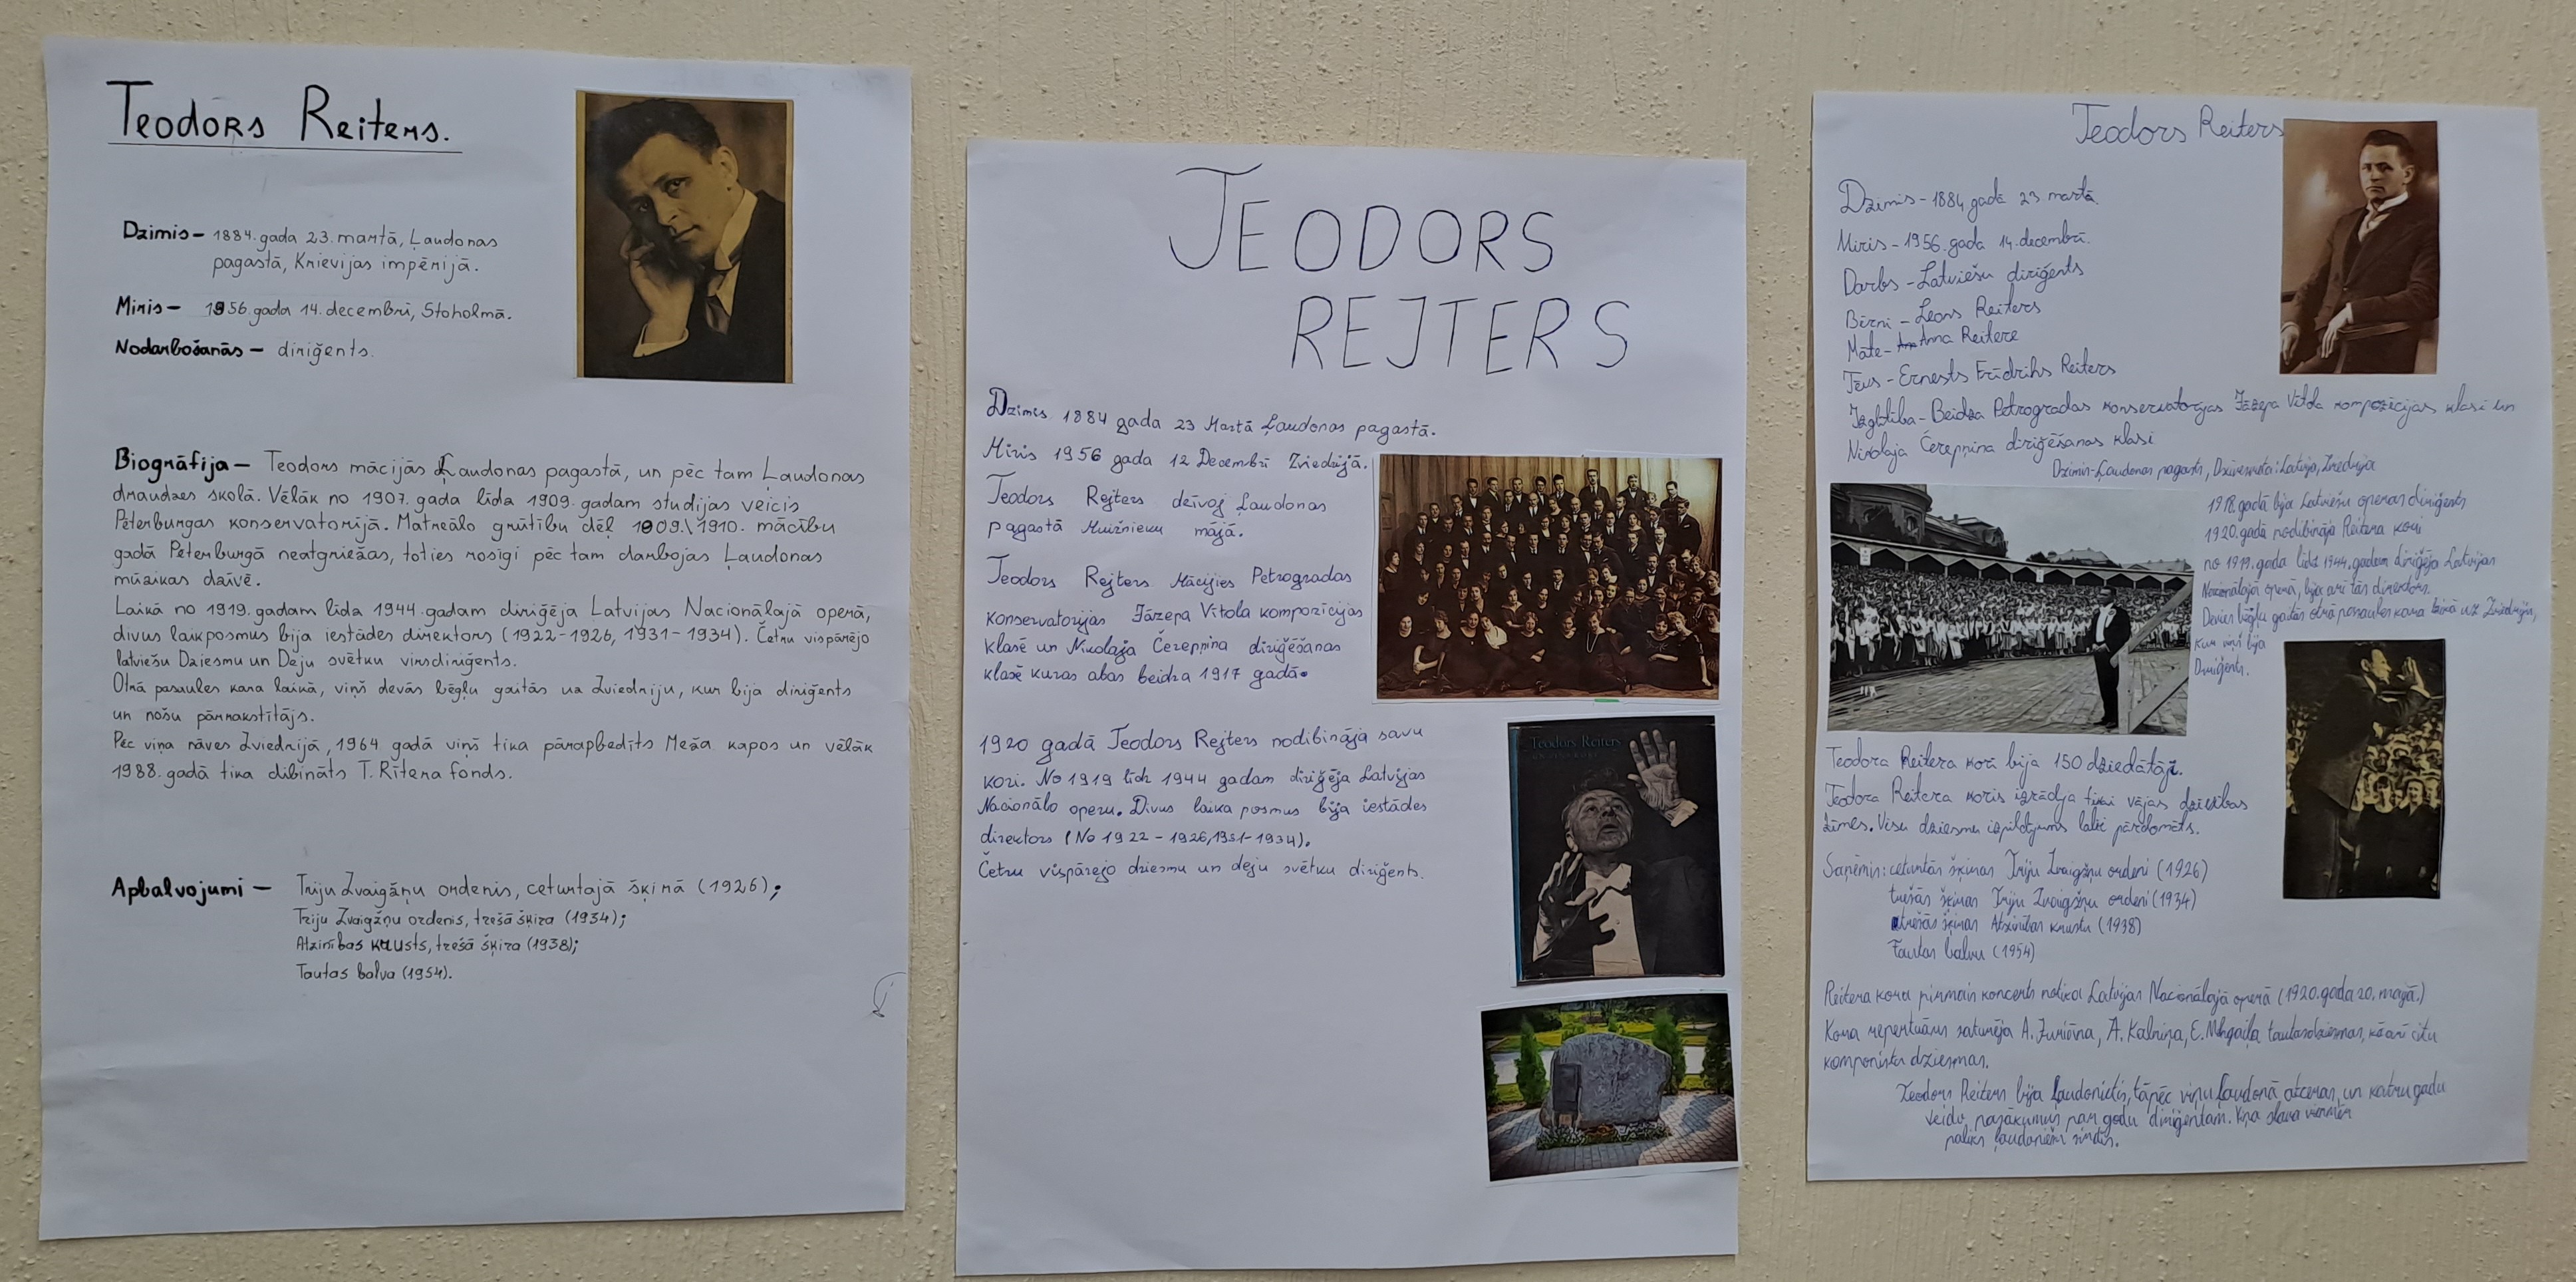 Teodors Reiters.
Dzimis – 1884. gada 23. martā, Ļaudonas
pagastā, Krievijas impērijā.
Miris – 1956. gada 14. decembrī, Stoholmā.
Nodarbošanās – diriģents.
Biogrāfija – Teodors mācijās Ļaudonas pagastā, un pēc tam Ļaudonas
draudzes skolā. Vēlāk no 1907. gada līdz 1909. gadam studijas veicis
Pēterburgas konservatorijā. Matreālo grūtību dēļ 1909.\1910. mācību
gadā Pēterburgā neatgriežas, toties rosīgi pēc tam darbojas Ļaudonas
mūzikas dzīvē.
Laikā no 1919. gadam līdz 1944. gadam diriģēja Latvijas Nacionālajā operā,
divus laikposmus bija iestādes direktors (1922-1926, 1931-1934). Četru vispārējo
latviešu Dziesmu un Deju svētku virsdiriģents.
Otrā pasaules kara laikā, viņš devās bēgļu gaitās uz Zviedriju, kur bija diriģents
un nošu pārrakstītājs.
Pēc viņa nāves Zviedrijā, 1964 gadā viņš tika pārapbedīts Meža kapos un vēlāk
1988. gadā tika dibināts T. Rītera fonds.
Apbalvojumi – Triju Zvaigžņu ordenis, ceturtajā šķirā (1926);
Triju Zvaigžņu ordenis, trešā šķira (1934);
Atzinības krusts, trešā šķira (1938);
Tautas balva (1954).
TEODORS
REJTERS
Dzimis 1884 gada 23 Martā Ļaudonas pagastā.
Miris 1956 gada 12 Decembrī Zviedrijā.
Teodors Rejters dzīvoj Ļaudonas
pagastā Muižnieku mājā.
Teodors Rejters Mācijies Petrogradas
konservatorijas Jāzepa Vītola kompozīcijas
klasē un Nikolaja Čerepņina diriģēšanas
klasē kuras abas beidza 1917 gadā.
1920 gadā Teodors Rejters nodibināja savu
kori. No 1919 līdz 1944 gadam diriģēja Latvijas
Nacionālo operu. Divus laika posmus bija iestādes
direktors (No 1922-1926, 1931-1934).
Četru vispārejo dziesmu un deju svētku diriģents.
Teodors Reiters
Teodors Reiters
Dzimis – 1884 gada 23 martā.
Miris – 1956. gada 14. decembrī.
Darbs – Latviešu diriģents
Bērni – Leons Reiters
Māte – Anna Reitere
Tēvs – Ernests Frīdrihs Reiters
Izglītība – Beidza Petrogradas konservatorijas Jāzepa Vītola kompozīcijas klasi un
Nikolaja Čerepņina diriģēšanas klasi
Dzimis – Ļaudonas pagasts, Dzīvesvieta: Latvija, Zviedrija
1918. gadā bija Latviešu operas diriģents
1920. gadā nodibināja Reitera kori
no 1919. gada līdz 1944. gadam diriģēja Latvijas
Nacionālajā operā, bija arī tās direktors.
Devies bēgļu gaitās otrā pasaules kara laikā uz Zviedriju,
kur viņš bija
Diriģents.
Teodora Reitera korī bija 150 dziedātāji.
Teodora Reitera koris izrādīja tikai vājās dziesības
zīmes. Visu dziesmu izpildījums labi pārdomāts.
Saņēmis: ceturtās šķiras Triju Zvaigžņu ordeni (1926)
trešās šķiras Triju Zvaigžņu ordeni (1934)
trešās šķiras Atzinības krustu (1938)
Tautas balvu (1954)
Reitera kora pirmais koncerts notika Latvijas Nacionālajā operā (1920. gada 20. maijā.)
Kora repertuārs saturēja A. Jurjāna, A. Kalniņa, E. Melngaiļa tautasdziesmas, kā arī citu
komponistu dziesmas.
Teodors Reiters bija Ļaudonietis, tāpēc viņu Ļaudonā atceras, un katru gadu
veido pasākumus par godu diriģentam. Viņa slava vienmēr
paliks ļaudoniešu sirdīs.